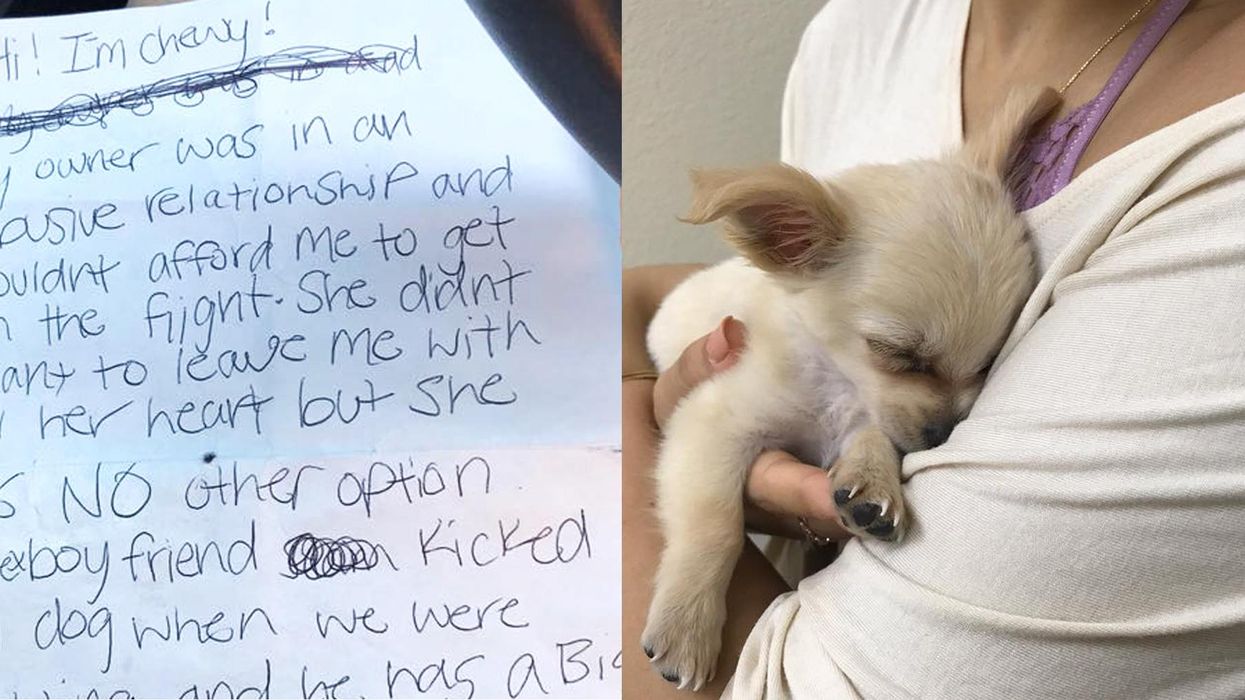 Hi! I'm chewy!
owner was in an
relationship and
afford me to get
the fijght. She didnt
to leave me with
her heart but she
NO other option
exboyfriend kicked
dog when we were
and he has a Big